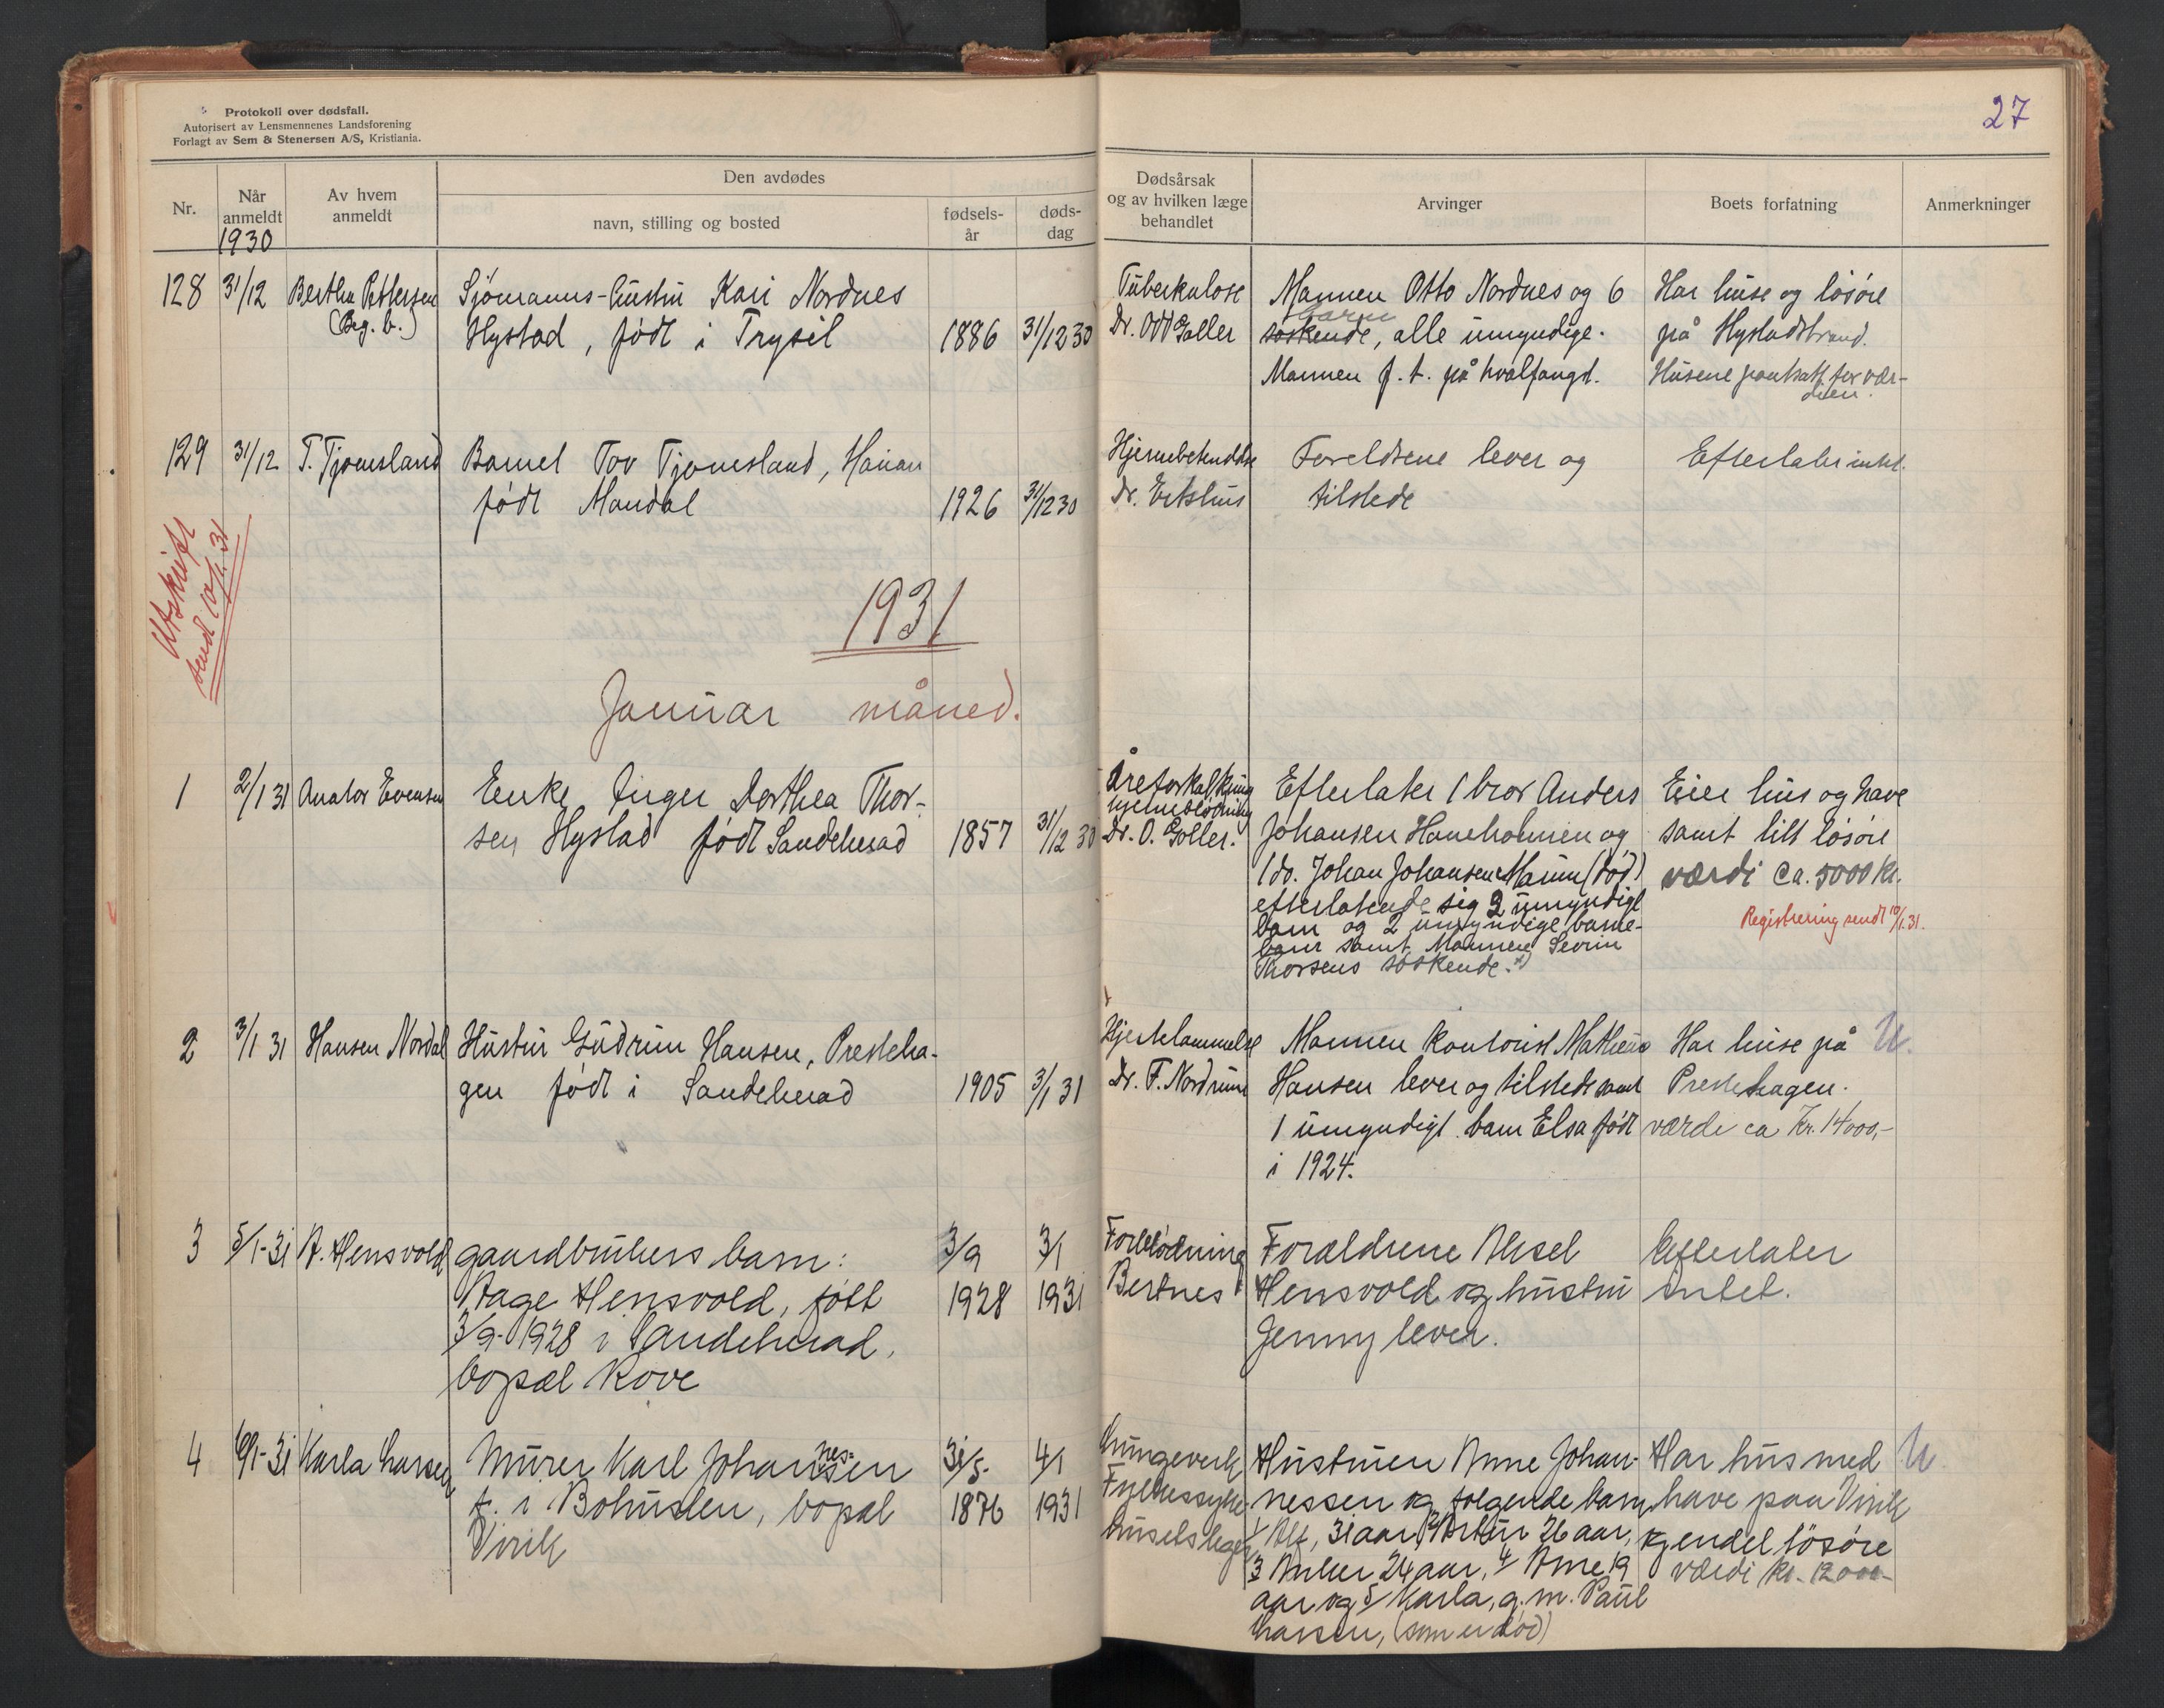 Protokoll over dødsfall.
Autorisert av Lensmennenes Landsforening
Forlagt av Sem & Stenersen A/S, Kristiania.
27
Nr.
Når anmeldt
1930
Av hvem anmeldt
Den avdødes
navn, stilling og bosted
fødsels-år
døds-dag
Dødsårsak og av hvilken læge behandlet
Arvinger
Boets forfatning
Anmerkninger
128 31/12 Bertha Pettersen
(Beg. b.)
Sjömanns-hustru Kari Nordnes
Hystad, født i Trysil 1886 31/12 30
Tuberkulose
Dr. Odd Goller
Mannen Otto Nordnes og 6
barn
søskende, alle umyndige.
Mannen f. t. på hvalfangst.
Har huse og løsøre
på Hystadstrand.
Husene pantsatt for vær-
dien.
129 31/12 T. Tjomsland
Barnet Tov Tjomsland, Haúan
født Mandal 1926 31/12 30
Hjernebetendelse
Dr.
Foreldrene lever og
tilstede
Efterlater intet.
Utskrift
sendt 10/1. 31
1931
Januar måned.
1 2/1 31 Anator Evensen
Enke Inger Dorthea Thor-
sen Hystad født Sandeherad 1857 31/12 30
Åreforkalkning
hjerneblødning
Dr. O. Goller.
Efterlater 1 bror Anders
Johansen Haneholmen og
1 do. Johan Johansen Marum (død)
efterlatende sig 2 umyndige
barn og 2 umyndige barne-
barn samt Mannens Sevrin
Thorsens søskende. x)
Eier hus og have
samt litt løsøre
værdi ca. 5000 kr.
Registrering sendt 10/1. 31.
2 3/1 31 Hansen Nordal
Hustru Gudrun Hansen, Presteha-
gen født i Sandeherad 1905 3/1 31
Hjertelammelse
Dr. F. Nordrum
Mannen kontorist Mathias
Hansen lever og tilstede samt
1 umyndigt barn Elsa født
i 1924.
Har huse på U.
Prestehagen.
værdi ca Kr. 14000,-
3 5/1-31 A. Hensvold
gaardbrukers barn:
Aage Hensvold, født
3/9-1928 i Sandeherad,
bopæl Rove
3/9
1928
3/1
1931
Forblödning
Bertnes
Forældrene Aksel
Hensvold og hustru
Jenny lever.
Efterlater
intet.
4 6/1-31 Karla Larsen
nes-
Murer Karl Johansen
f. i Bohuslen, bopæl
Virik
31/5-
1876
4/1
1931
Lungeverk
Fylkessyke-
husets leger
Hustruen Anne Johan-
nessen og følgende barn
1/ Alf, 31 aar, 2/ Artur 26 aar,
3/ Anker 24 aar, 4/ Arne 19
aar og 5/ Karla, g. m. Paul
Larsen, (som er död)
Har hus med U.
have paa Virik
og endel lösöre
værdi kr. 12000-